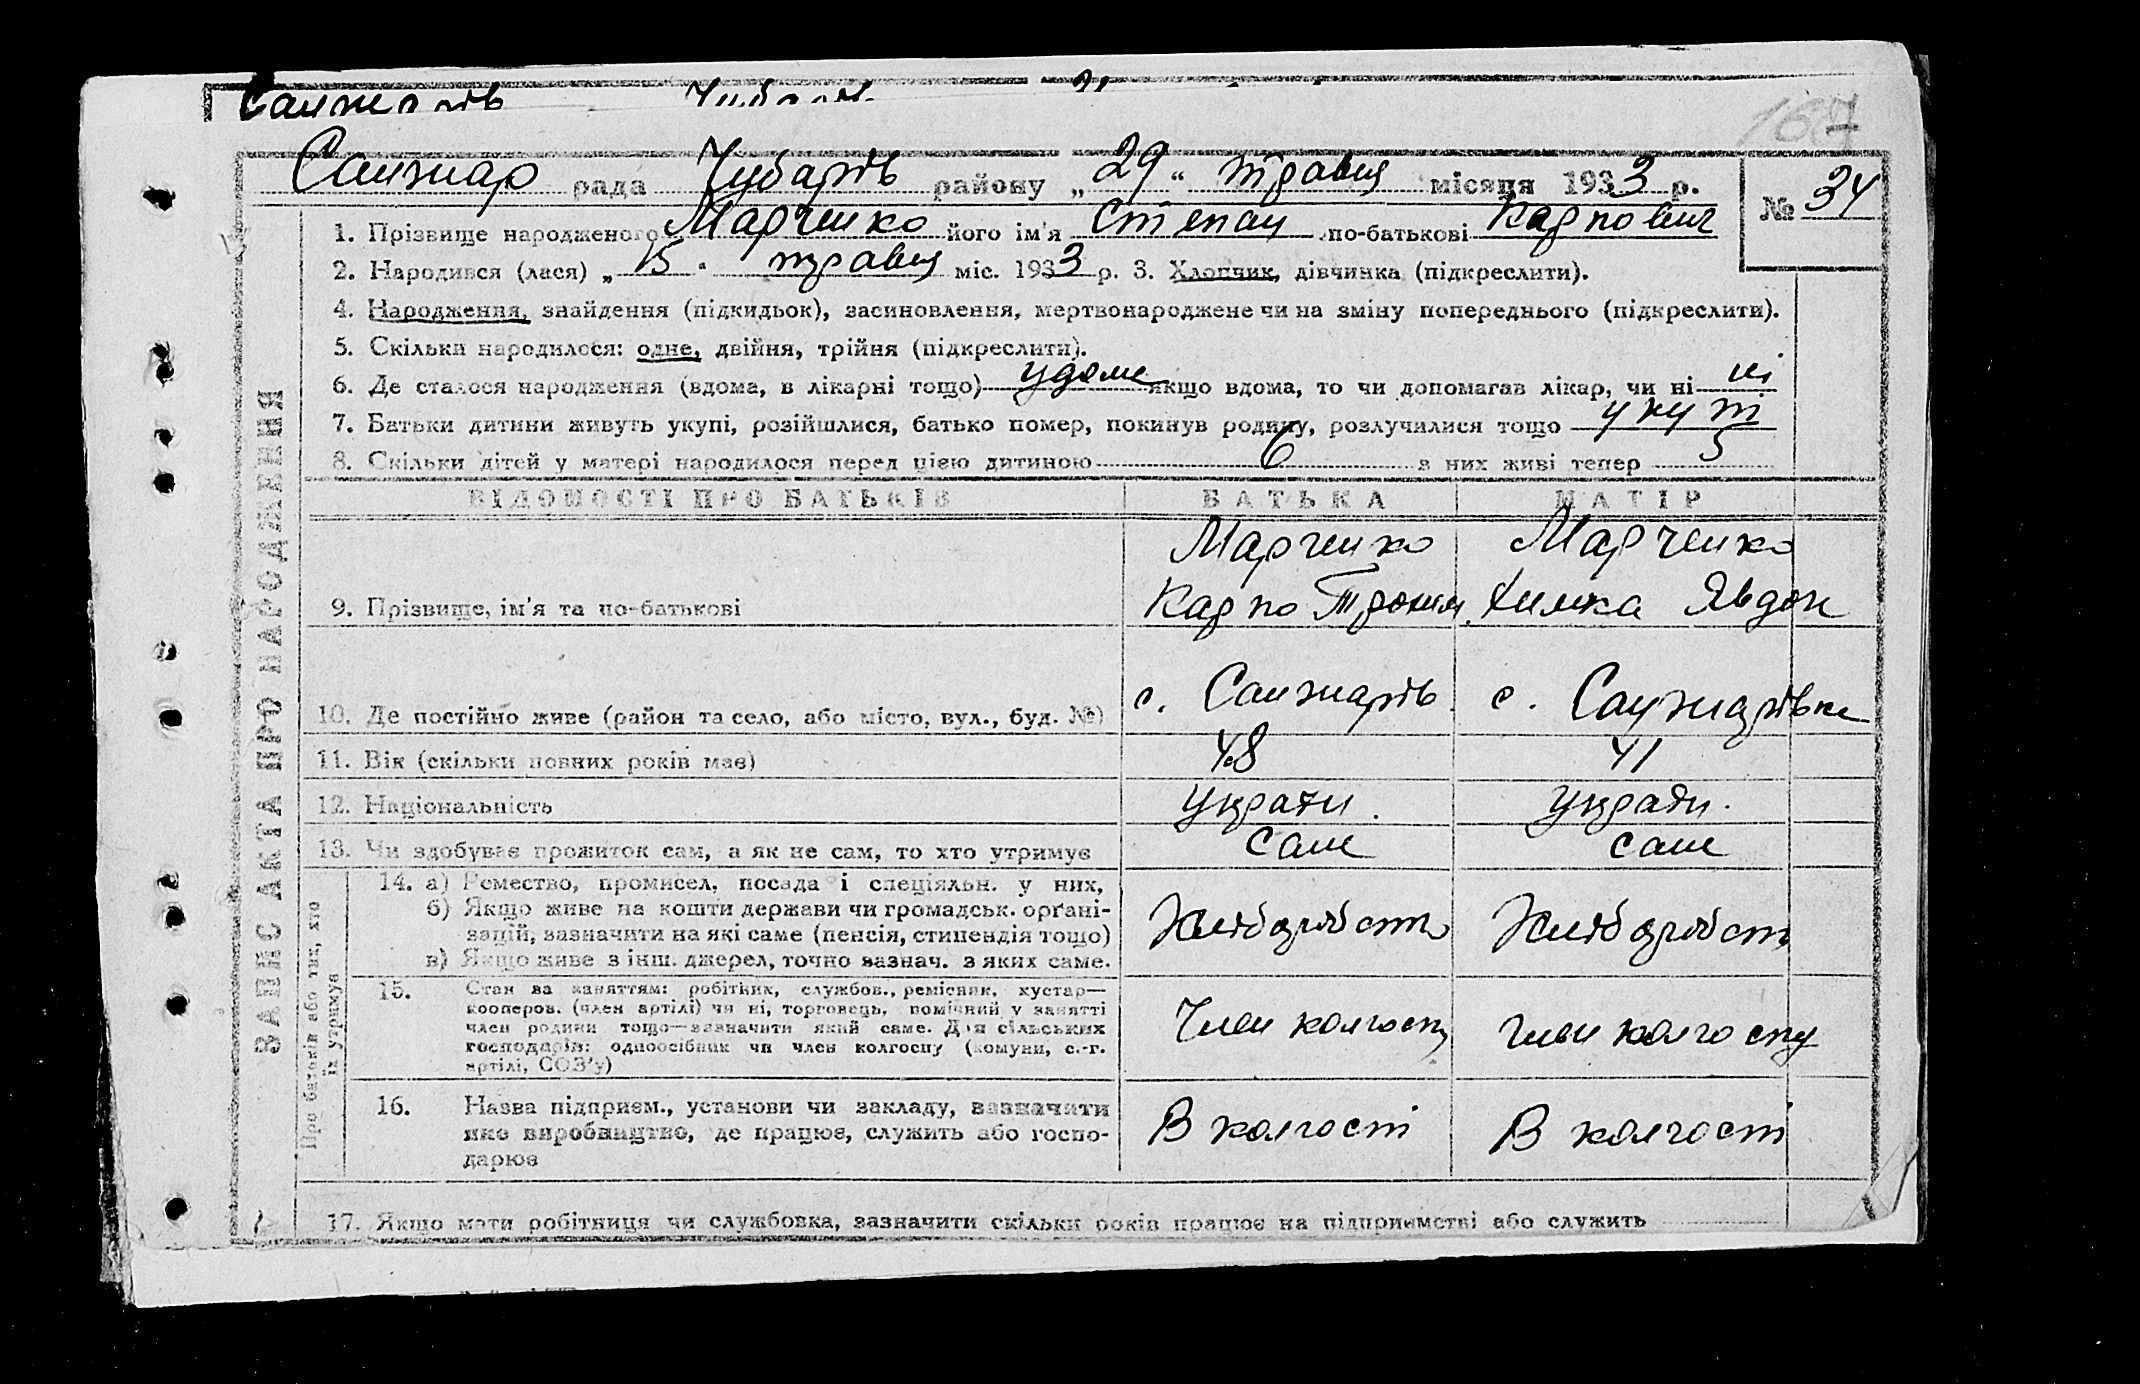 167
Санжар рада Чубарів району „29“ травня місяця 1933 р.
№ 34
ЗАПИС АКТА ПРО НАРОДЖЕННЯ
1. Прізвище народженого Марченко його ім'я Степан по-батькові Карпович
2. Народився (лася) „15" травня міс. 1933 р. 3. Хлопчик, дівчинка (підкреслити).
4. Народження, знайдення (підкидьок), засиновлення, мертвонароджене чи на зміну попереднього (підкреслити).
5. Скільки народилося: одне, двійня, трійня (підкреслити).
6. Де сталося народження (вдома, в лікарні тощо) удома якщо вдома, то чи допомагав лікар, чи ні ні
7. Батьки дитини живуть укупі, розійшлися, батько помер, покинув родину, розлучилися тощо укупі
8. Скільки дітей у матері народилося перед цією дитиною 6 з них живі тепер 5
ВІДОМОСТІ ПРО БАТЬКІВ БАТЬКА МАТІР
9. Прізвище, ім'я та по-батькові
Марченко Карпо Трохим.
Марченко Химка Явдок
10. Де постійно живе (район та село, або місто, вул., буд. №) с. Санжарів. с. Санжарівка
11. Вік (скільки повних років має) 48 41
12. Національність Украін. Украін.
13. Чи здобуває прожиток сам, а як не сам, то хто утримує сам сам
Про батьків або тих, хто їх утримує
14. а) Ремество, промисел, посада і спеціяльн. у них,
б) Якщо живе на кошти держави чи громадськ. орґані-
зацій, зазначити на які саме (пенсія, стипендія тощо)
в) Якщо живе з інш. джерел, точно зазнач. з яких саме.
Хліборобств Хліборобст
15. Стан за заняттям: робітник, службов., ремісник, кустар—
кооперов. (член артілі) чи ні, торговець, помічний у занятті
член родини тощо—зазначити який саме. Для сільських
господарів: одноосібник чи член колгоспу (комуни, с.-г.
артілі, СОЗ'у)
Член колгоспу член колгоспу
16. Назва підприєм., установи чи закладу, зазначити
яке виробництво, де працює, служить або госпо-
дарює
В колгоспі В колгоспі
17. Якщо мати робітниця чи службовка, зазначити скільки років працює на підприємстві або служить